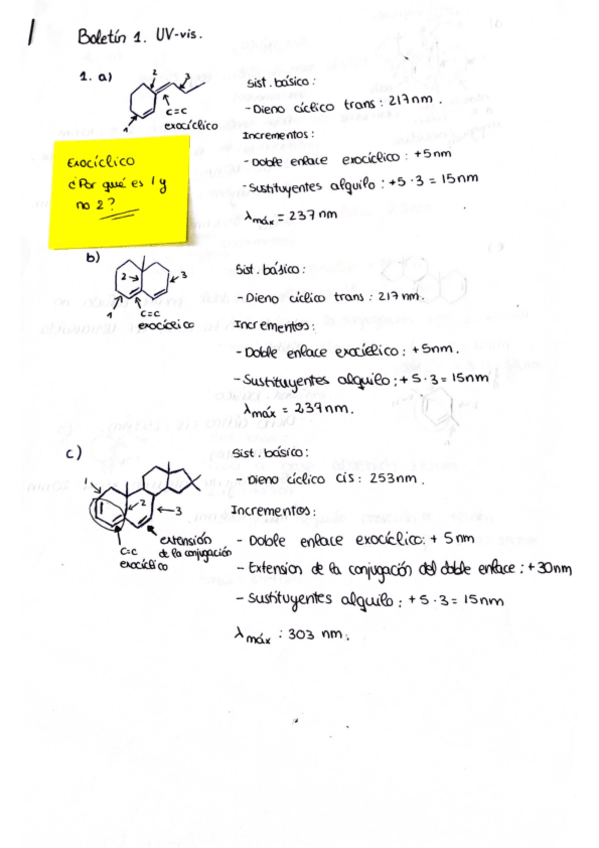 1
Boletín 1. UV-vis.
1. a)
2
3
C=C
exocíclico
1
Sist. básico:
- Dieno cíclico trans: 217nm.
Incrementos:
- Doble enlace exocíclico: +5nm
- Sustituyentes alquilo: +5·3 = 15nm
λmáx = 237 nm
Exocíclico
¿Por qué es 1 y
no 2?
b)
2
3
1
C=C
exocíclico
Sist. básico:
- Dieno cíclico trans: 217 nm.
Incrementos:
- Doble enlace exocíclico: +5nm.
- Sustituyentes alquilo: + 5·3 = 15nm
λmáx = 237nm.
c)
1
2
3
C=C
exocíclico
extensión
de la conjugación
Sist. básico:
- Dieno cíclico cis: 253nm.
Incrementos:
- Doble enlace exocíclico: + 5nm
- Extension de la conjugación del doble enlace: +30nm
- Sustituyentes alquilo: + 5·3 = 15nm
λmáx : 303 nm.